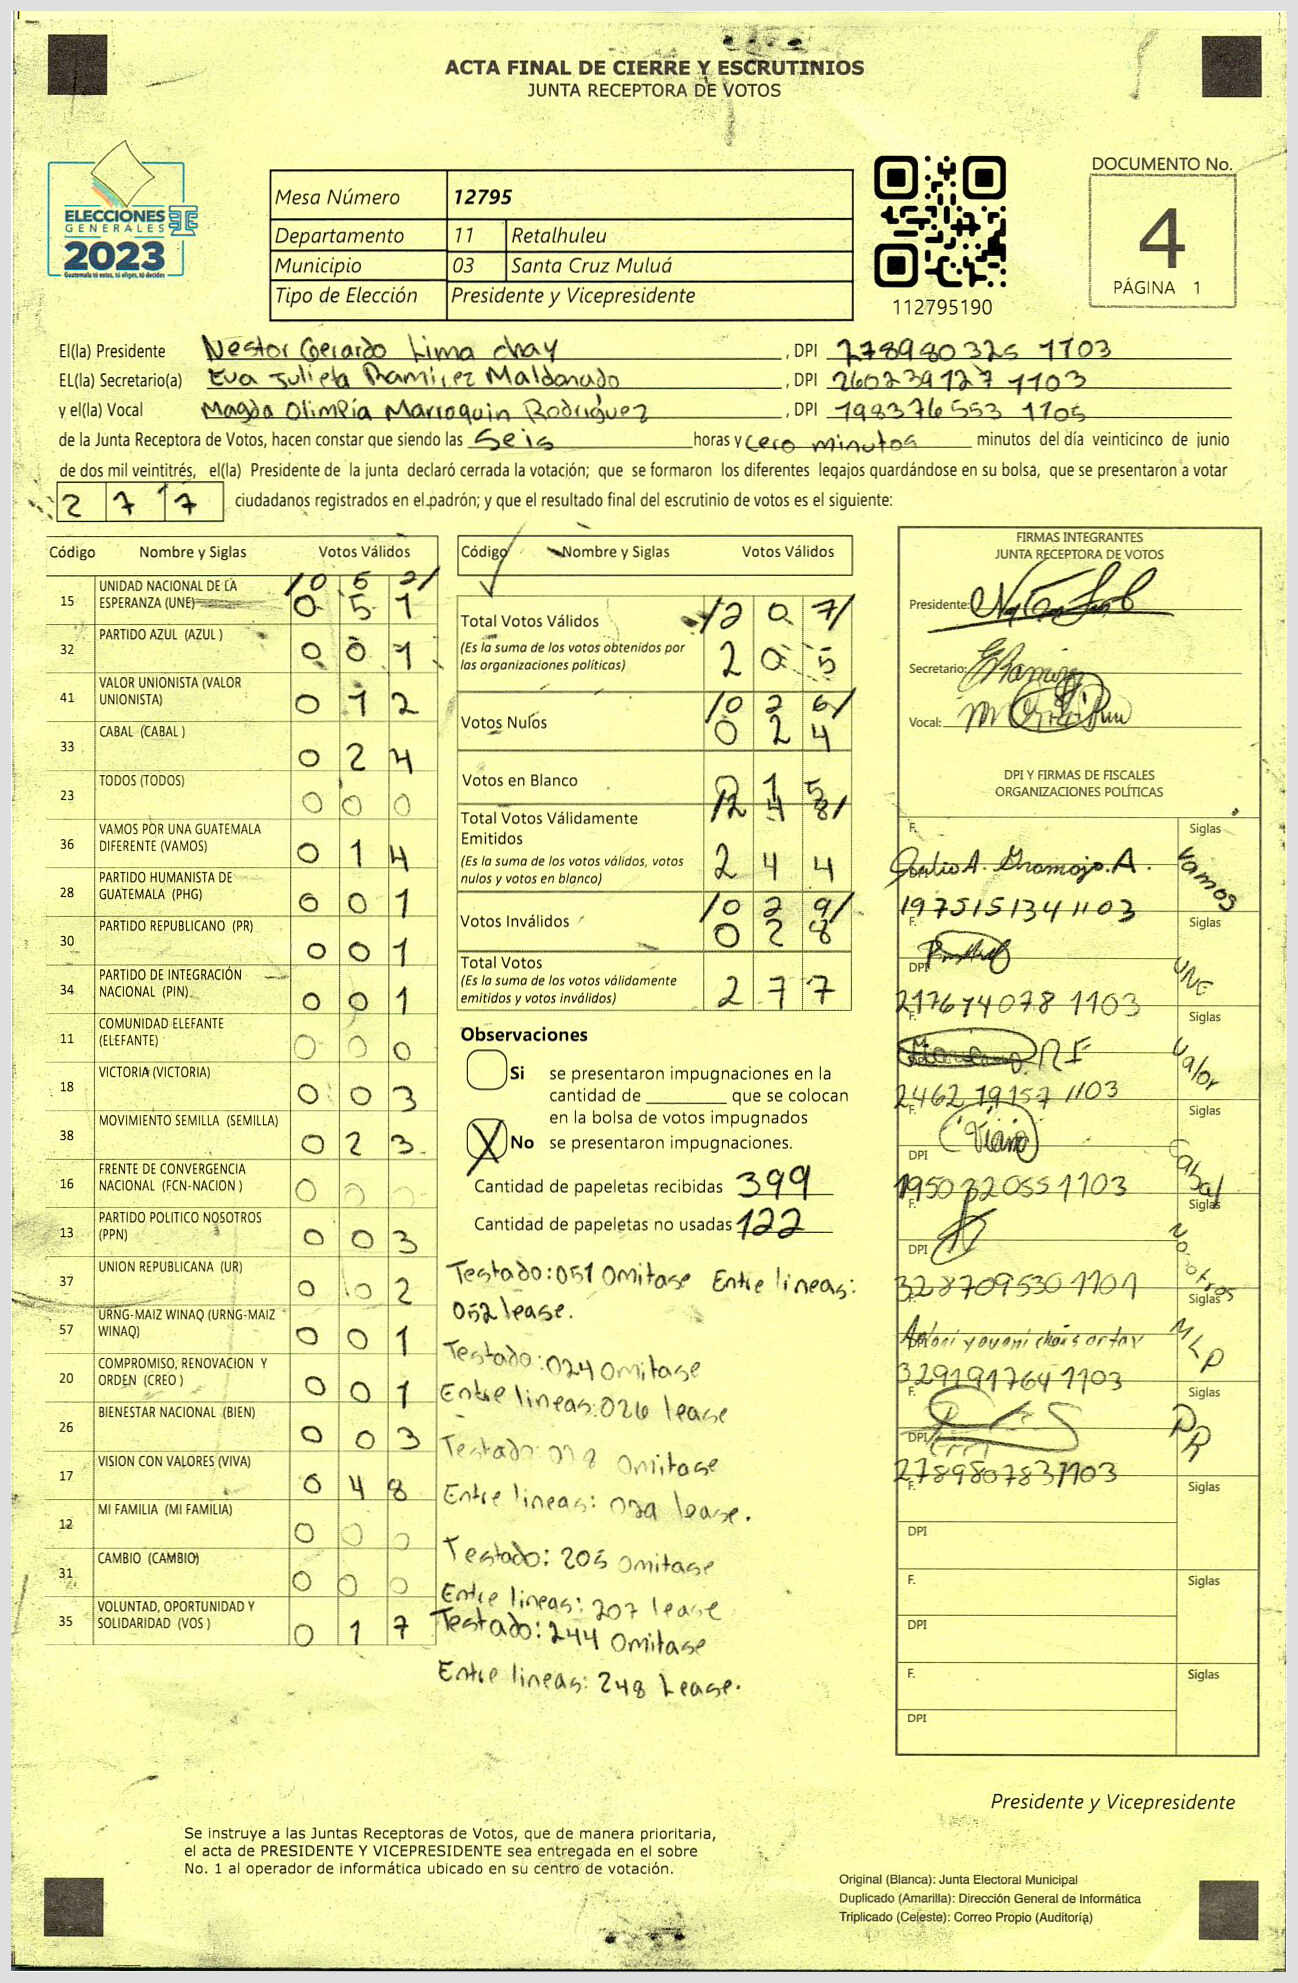 ACTA FINAL DE CIERRE Y ESCRUTINIOS
JUNTA RECEPTORA DE VOTOS
ELECCIONES
GENERALES
2023
Guatemala tú votas, tú eliges, tú decides
Mesa Número 12795
Departamento 11 Retalhuleu
Municipio 03 Santa Cruz Muluá
Tipo de Elección Presidente y Vicepresidente
112795190
DOCUMENTO No.
4
PÁGINA 1
El(la) Presidente Nestor Gerardo Lima chay , DPI 278980325 1103
EL(la) Secretario(a) Eva Julieta Ramirez Maldonado , DPI 260239727 1103
y el(la) Vocal Magda Olimpia Marroquin Rodriguez , DPI 198376553 1105
de la Junta Receptora de Votos, hacen constar que siendo las Seis horas y cero minutos minutos del día veinticinco de junio
de dos mil veintitrés, el(la) Presidente de la junta declaró cerrada la votación; que se formaron los diferentes legajos quardándose en su bolsa, que se presentaron a votar
2 7 7 ciudadanos registrados en el padrón; y que el resultado final del escrutinio de votos es el siguiente:
Código Nombre y Siglas Votos Válidos
15 UNIDAD NACIONAL DE LA ESPERANZA (UNE) /0 5 2/
0 5 1
32 PARTIDO AZUL (AZUL ) 0 0 1
41 VALOR UNIONISTA (VALOR UNIONISTA) 0 1 2
33 CABAL (CABAL ) 0 2 4
23 TODOS (TODOS) 0 0 0
36 VAMOS POR UNA GUATEMALA DIFERENTE (VAMOS) 0 1 4
28 PARTIDO HUMANISTA DE GUATEMALA (PHG) 0 0 1
30 PARTIDO REPUBLICANO (PR) 0 0 1
34 PARTIDO DE INTEGRACIÓN NACIONAL (PIN) 0 0 1
11 COMUNIDAD ELEFANTE (ELEFANTE) 0 0 0
18 VICTORIA (VICTORIA) 0 0 3
38 MOVIMIENTO SEMILLA (SEMILLA) 0 2 3
16 FRENTE DE CONVERGENCIA NACIONAL (FCN-NACION ) 0 0 0
13 PARTIDO POLITICO NOSOTROS (PPN) 0 0 3
37 UNION REPUBLICANA (UR) 0 0 2
57 URNG-MAIZ WINAQ (URNG-MAIZ WINAQ) 0 0 1
20 COMPROMISO, RENOVACION Y ORDEN (CREO ) 0 0 1
26 BIENESTAR NACIONAL (BIEN) 0 0 3
17 VISION CON VALORES (VIVA) 0 4 8
12 MI FAMILIA (MI FAMILIA) 0 0 0
31 CAMBIO (CAMBIO) 0 0 0
35 VOLUNTAD, OPORTUNIDAD Y SOLIDARIDAD (VOS ) 0 1 7
Código Nombre y Siglas Votos Válidos
Total Votos Válidos /2 0 7/
(Es la suma de los votos obtenidos por
las organizaciones políticas) 2 0 5
Votos Nulos /0 2 6/
0 2 4
Votos en Blanco 0 1 5
Total Votos Válidamente Emitidos /2 4 8/
(Es la suma de los votos válidos, votos
nulos y votos en blanco) 2 4 4
Votos Inválidos /0 2 9/
0 2 8
Total Votos
(Es la suma de los votos válidamente
emitidos y votos inválidos) 2 7 7
Observaciones
Si se presentaron impugnaciones en la
cantidad de ________ que se colocan
en la bolsa de votos impugnados
X No se presentaron impugnaciones.
Cantidad de papeletas recibidas 399
Cantidad de papeletas no usadas 122
Testado: 051 Omitase Entre lineas:
052 lease.
Testado: 024 Omitase
Entre lineas: 026 lease
Testado: 028 Omitase
Entre lineas: 029 lease.
Testado: 205 omitase
Entre lineas: 207 lease
Testado: 244 Omitase
Entre lineas: 248 Lease.
FIRMAS INTEGRANTES
JUNTA RECEPTORA DE VOTOS
Presidente:
Secretario: ERamirez
Vocal:
DPI Y FIRMAS DE FISCALES
ORGANIZACIONES POLÍTICAS
F. Siglas
Julio A. Gramajo. A. Vamos
197515134 1103
F. Siglas
DPI UNE
217674078 1103
F. Siglas
RF Valor
2462 19157 1103
F. Siglas
DPI Cabal
195032055 1103
F. Siglas
DPI Nosotros
328709530 1101
F. Siglas
MLP
329191764 1103
F. Siglas
DPI PR
278980783 1103
F. Siglas
DPI
F. Siglas
DPI
F. Siglas
DPI
Presidente y Vicepresidente
Se instruye a las Juntas Receptoras de Votos, que de manera prioritaria,
el acta de PRESIDENTE Y VICEPRESIDENTE sea entregada en el sobre
No. 1 al operador de informática ubicado en su centro de votación.
Original (Blanca): Junta Electoral Municipal
Duplicado (Amarilla): Dirección General de Informática
Triplicado (Celeste): Correo Propio (Auditoría)